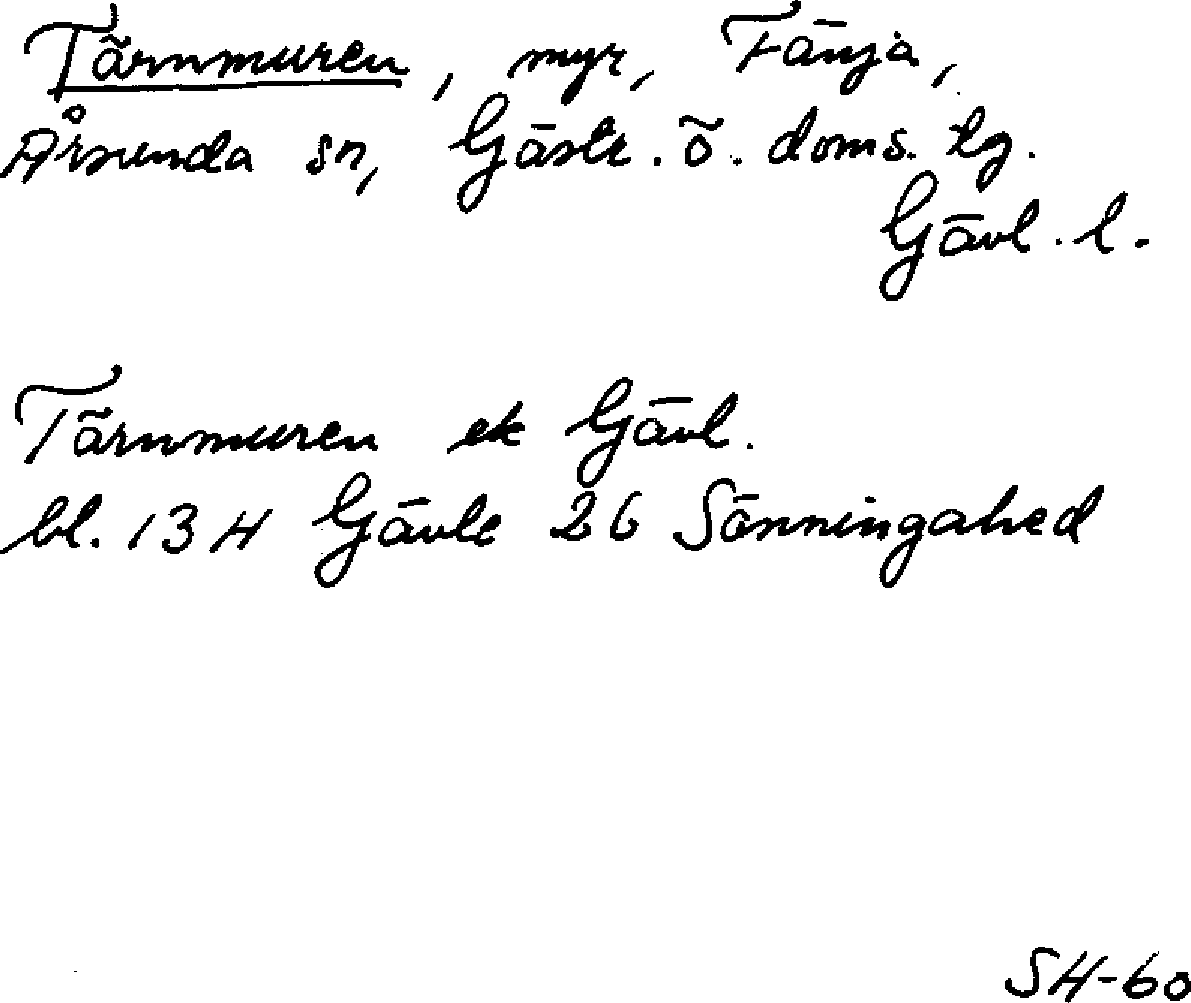 Tärnmuren, myr, Fänja,
Årsunda sn, Gästr. ö. doms. lg.
Gävl. l.
Tärnmuren ek Gävl.
bl. 13 H Gävle 26 Sönningahed
SH-60